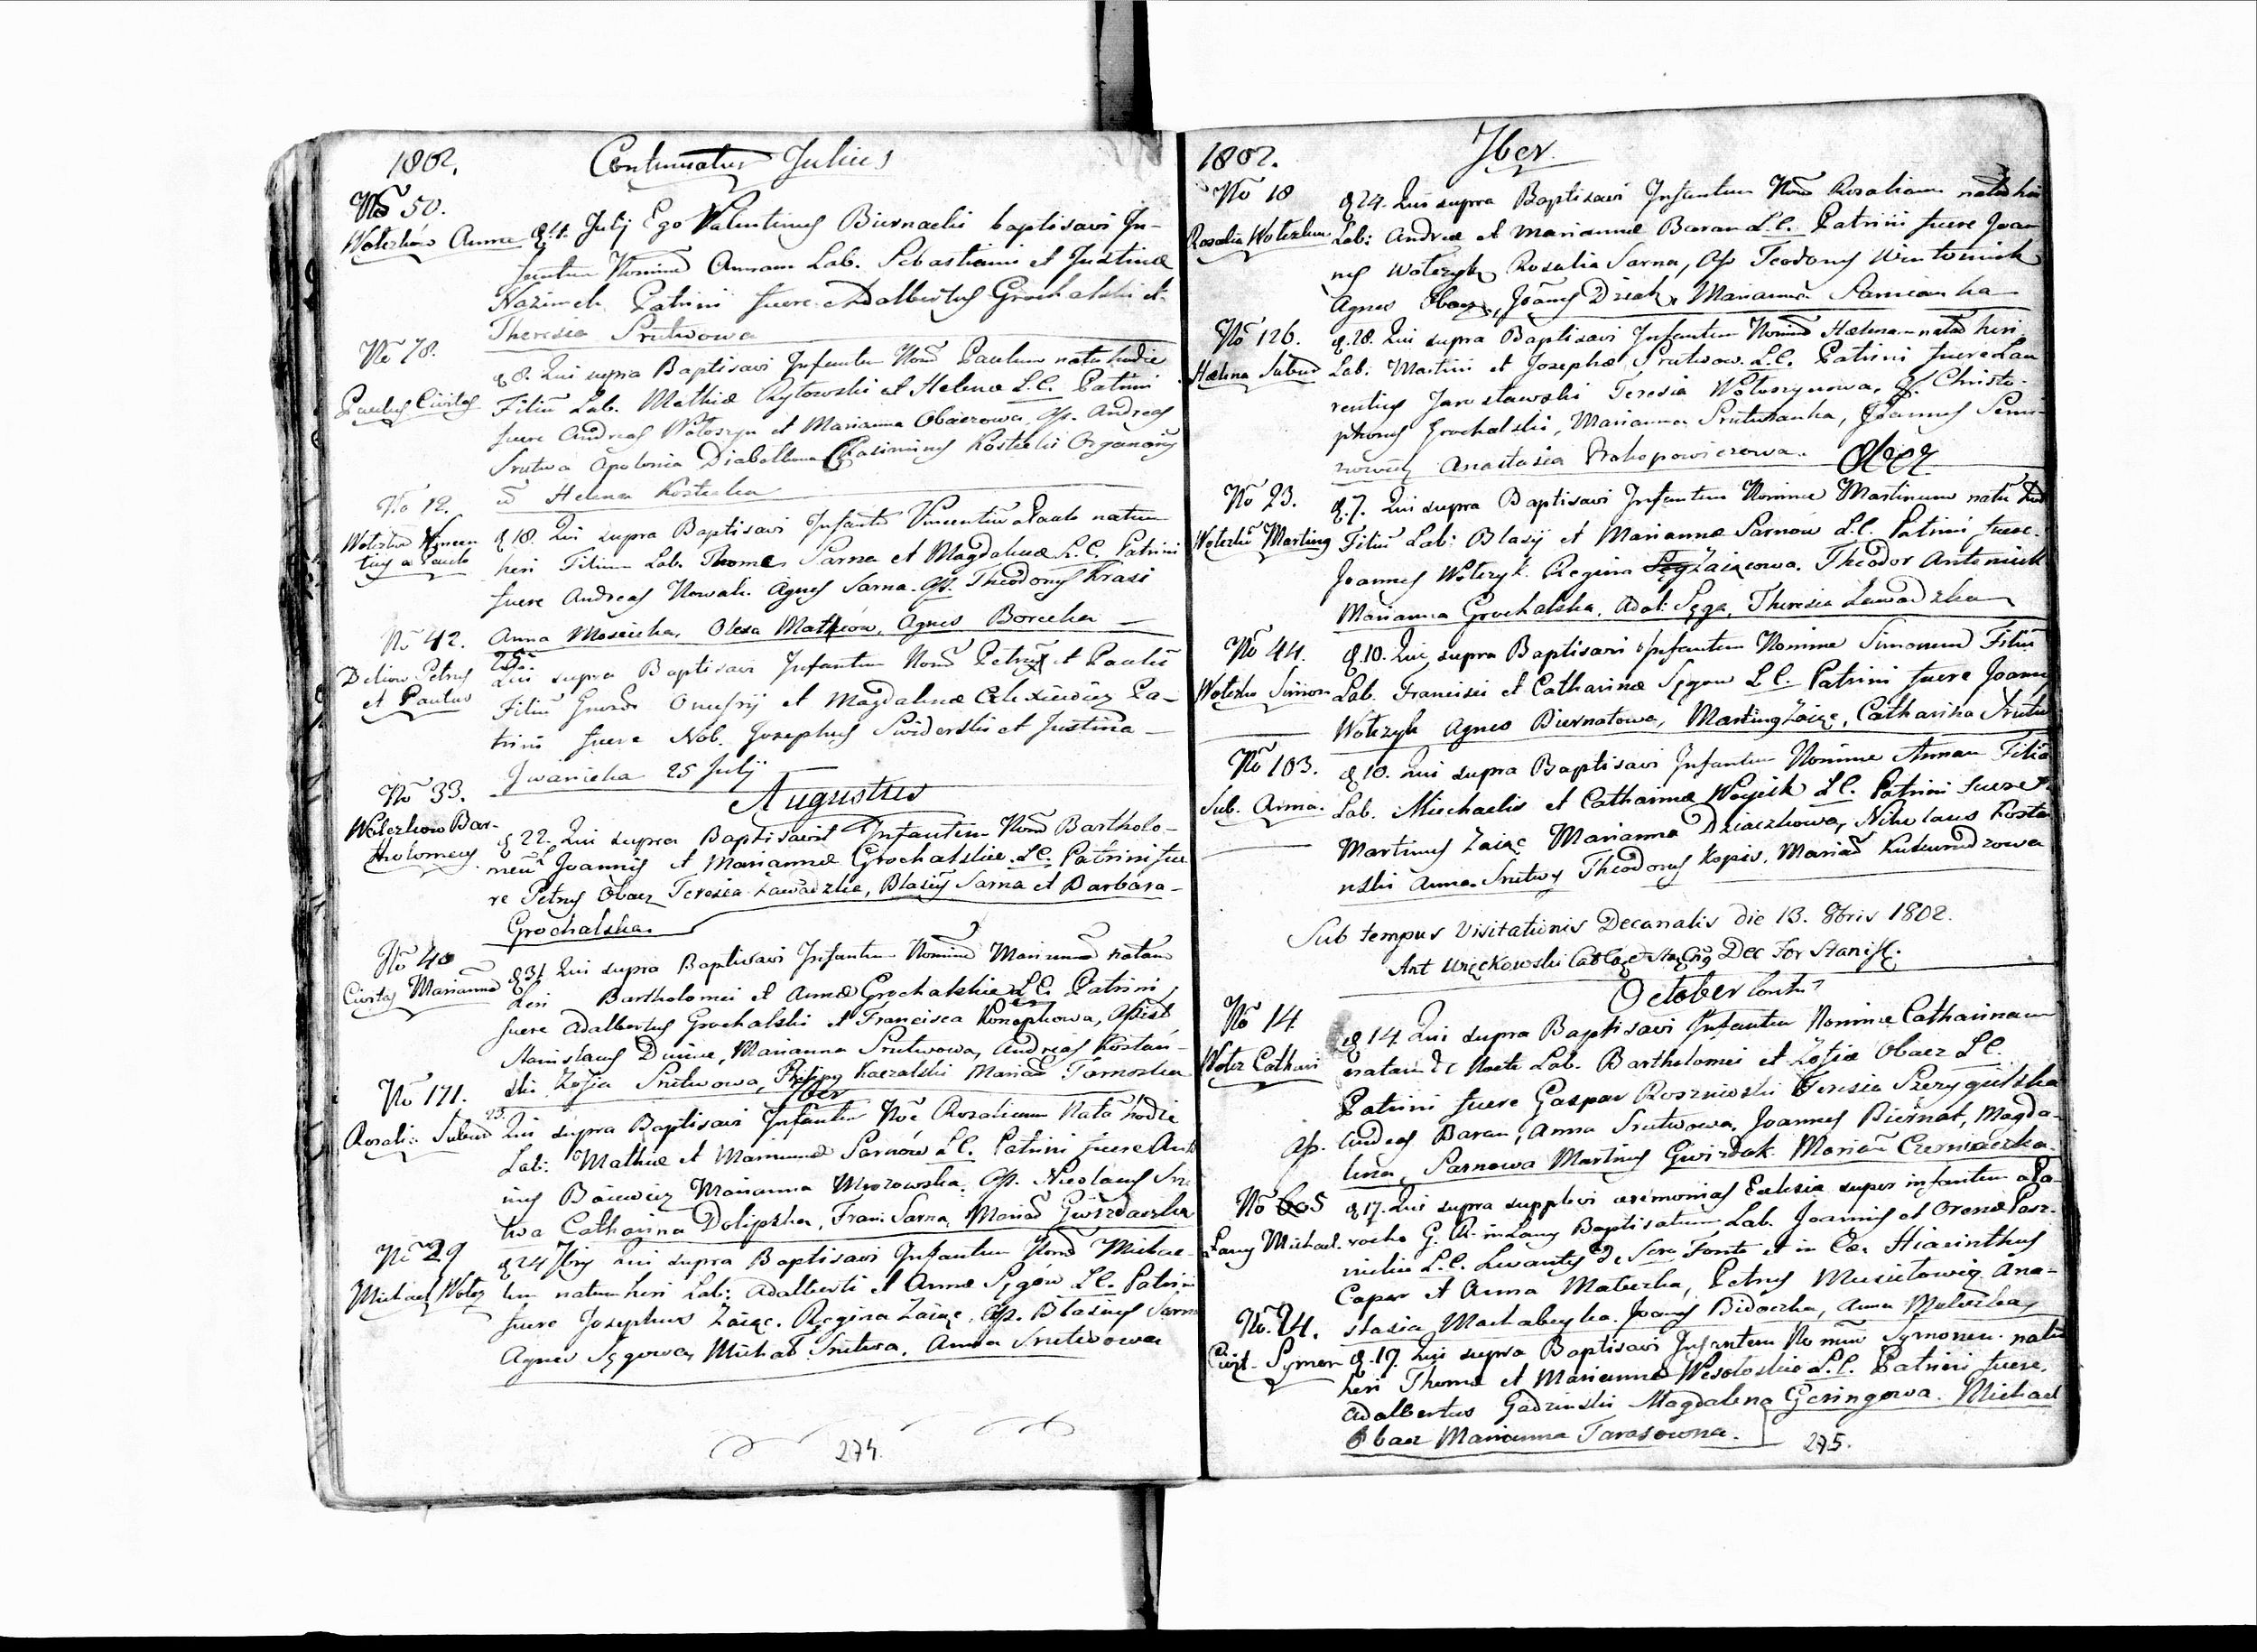 1802. Continuatur Julius
No 50.
Wolezków Anna d. 4. July Ego Valentinus Biernacki baptisavi In-
fantem Nomine Annam Lab. Sebastiani et Justinæ
Kazimek Patrini fuere Adalbertus Grochalski et
Theresia Srutwowa
No 78.
Paulus Civitas
d 8. Qui supra Baptisavi Infantem Nom Paulum natu hodie
Filiu Lab. Mathiæ Rytowski et Helenæ L.C. Patrini
fuere Andreas Wołoszyn et Marianna Obaczowa, As. Andreas
Srutwa Apolonia Diabołkowa Casimirus Kostecki Organarius
et Helena Kostecka
No 12.
Wolezków Vincen
tius a Paulo
d 18. Qui supra Baptisavi Infante Vincentiu a Paulo natum
heri Filium Lab. Thomæ Sarna et Magdalenæ L.C. Patrini
fuere Andreas Nowak. Agnes Sarna. As. Theodorus Krasi
Anna Mosiecka, Olexa Matkiów, Agnes Borecka
No 42.
Deliow Petrus
et Paulus
25.
Qui supra Baptisavi Infantem Nom Petrus et Paulu
Filiu Onufrij et Magdalenæ Alexiewicz Pa-
trini fuere Nob. Josephus Swiderski et Justina
Iwanicka 25 July
Augustus
No 33.
Wolezkow Bar-
tholomeus
d 22. Qui supra Baptisavit Infantem Nom Bartholo-
meu Joannis et Mariannæ Grochalskie L.C. Patrini fue
re Petrus Obacz Teresia Zawadzka, Blasius Sarna et Barbara
Grochalska
No 40
Civitas Marianna
d 31 Qui supra Baptisavi Infantem Nomine Mariannā natam
heri Bartholomei et Annæ Grochalskie L.C. Patrini
fuere Adalbertus Grochalski et Francisca Konopkowa, Assist
Stanislaus Marianna Srutwowa, Andreas Kostań-
ski Zofia Srutwowa, Philipus Kaczalski Marian Tarnoska
7ber
No 171.
Rosalia Suburb
23. Qui supra Baptisavi Infantem Noe Rosaliam Nata hodie
Lab: Mathiæ et Mariannæ Sarnów L.C. Patrini fuere Anto
nius Marianna Mrozowska, As. Nicolaus Sru
twa Catharina Dolipska, Fran: Sarna, Marian Gwizdaczka
No 29
Michael Wolez
d 24 7bris Qui supra Baptisavi Infantem Nom Michae-
lem natum heri Lab: Adalberti et Annæ Sęgów L.C. Patrini
fuere Josephus Zaiąc. Regina Zaiąc. As. Blasius Sarna
Agnes Sęgowa, Michał Srutwa, Anna Srutwowa
274.
1802. 7ber
No 18
Rosalia Wolezków
d 24. Qui supra Baptisavi Infantem Nom Rosaliam nata heri
Lab: Andreæ et Mariannæ Baran L.C. Patrini fuere Joan
nes Wołczyk Rosalia Sarna, As Teodorus Wintoniuk
Agnes Obacz, Joanes Dziak, Marianna
No 126.
Helena Suburb
d. 28. Qui supra Baptisavi Infantem Nomine Hælenam natā heri
Lab. Martini et Josephæ Srutwow L.C. Patrini fuere Lau
rentius Jarosławski Teresia Wołoszynowa, As Christo-
phorus Grochalski, Marianna Srutwianka, Joannes Semi
nowicz Anastasia Prokopowiczowa. 8ber
No 23.
Wolezków Martinus
d. 7. Qui supra Baptisavi Infantem Nomine Martinum natu hod
Filiu Lab: Blasij et Mariannæ Sarnów L.C. Patrini fuere
Joannes Wołczyk. Regina Zaiącowa. Theodor Antoniuk
Marianna Grochalska. Adal: Sęga, Theresia Zawadzka
No 44.
Wolezków Simon
d. 10. Qui supra Baptisavi Infantem Nomine Simonem Filiu
Lab. Francisci et Catharinæ Sęgow L.C. Patrini fuere Joannes
Wołczyk Agnes Biernatowa, Martinus Zaiąc, Catharina Srutw
No 103.
Sub. Anna.
d 10. Qui supra Baptisavi Infantem Nomine Annam Filia
Lab. Michaelis et Catharinæ Woycik L.C. Patrini fuere
Martinus Zaiąc Marianna Dziaczkowa, Nikolaus Kosta
nski Anna Srutwy Theodorus Kopis, Marian Kukurudzowa
Sub tempus Visitationis Decanalis die 13. 8bris 1802.
Ant Więckowski Dec For Stanisl.
October Cont.
No 14
Wolez Catharī
d 14 Qui supra Baptisavi Infantem Nomine Catharinam
natam de Nocte Lab. Bartholomei et Zofiæ Obacz L.C.
Patrini fuere Gaspar Roszniowski Teresia Szczygielska
As. Andreas Baran, Anna Srutwowa. Joannes Biernat, Magda-
lena Sarnowa Martinus Gwizdak Marian Czerniaczka.
No 605
Łany Michael.
d 17. Qui supra supplevi ceremonias Eclesiæ super infantem a Pa-
rocho G. R. in Łany Baptisatum Lab. Joannis et Orenæ
L.C. Levantes de Sacro Fonte et in Hiacinthus
Caper et Anna Matuszka, Petrus Musiatowicz Ana-
stasia Machabeyka. Joanes Bidaczka, Anna
No. 24.
Civit. Symon
d. 17. Qui supra Baptisavi Infantem Nomine Symonem natu
heri Thomæ et Mariannæ Wesołoskie L.C. Patrini fuere.
Adalbertus Gadzinski Magdalena Geringowa. Michael
Obacz Marianna Tarasowna.
275.